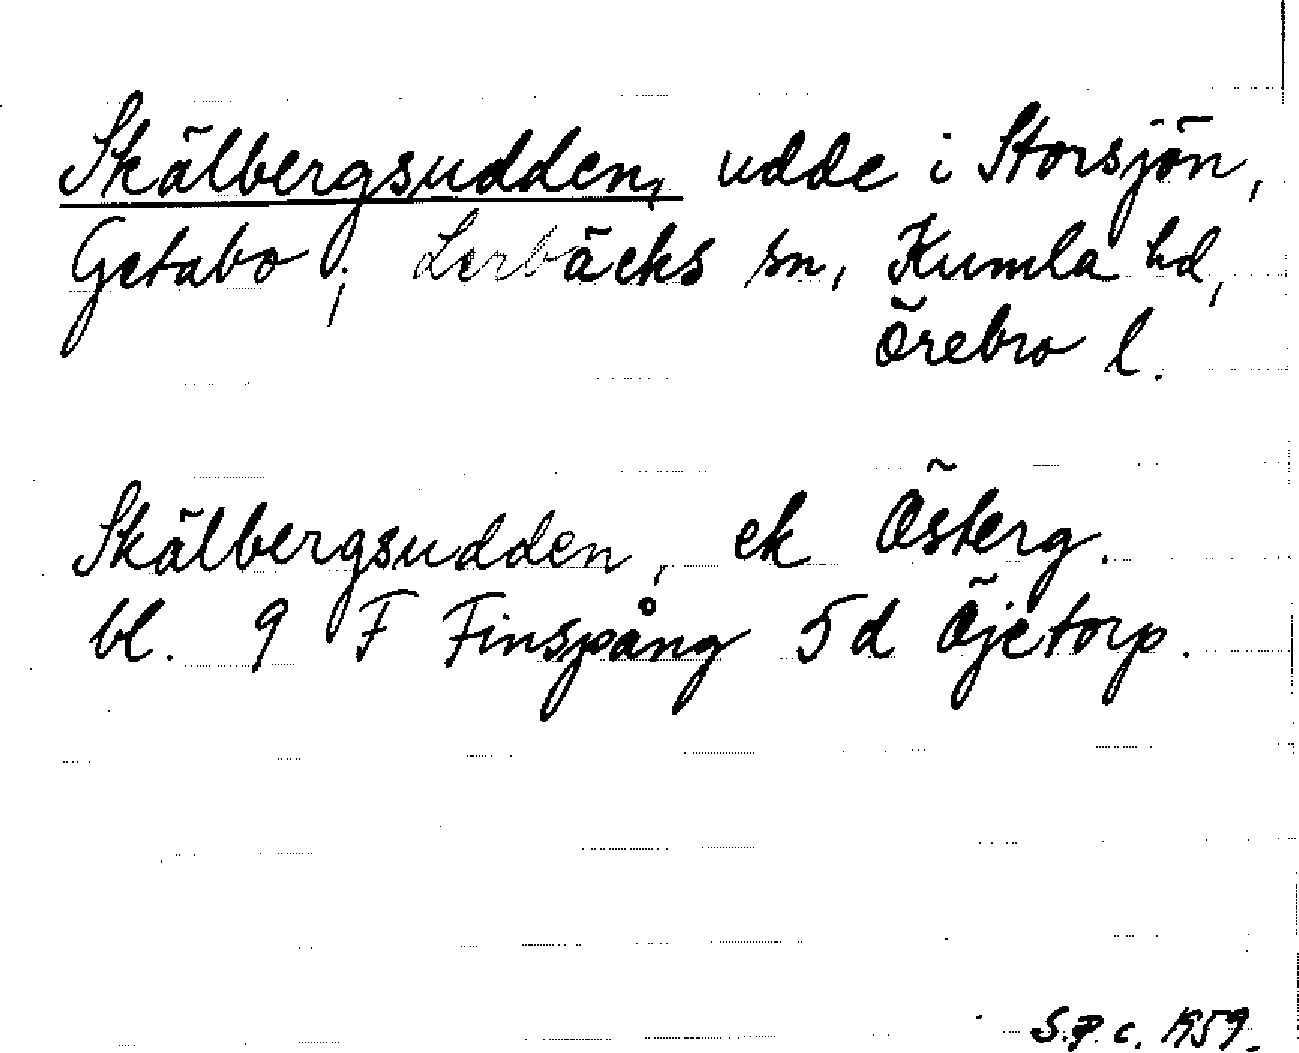 Skälbergsudden, udde i Storsjön,
Getabo, Lerbäcks sn, Kumla hd,
Örebro l.
Skälbergsudden, ek Österg.
bl. 9 F Finspång 5d Öjetorp.
S.P.c. 1959.